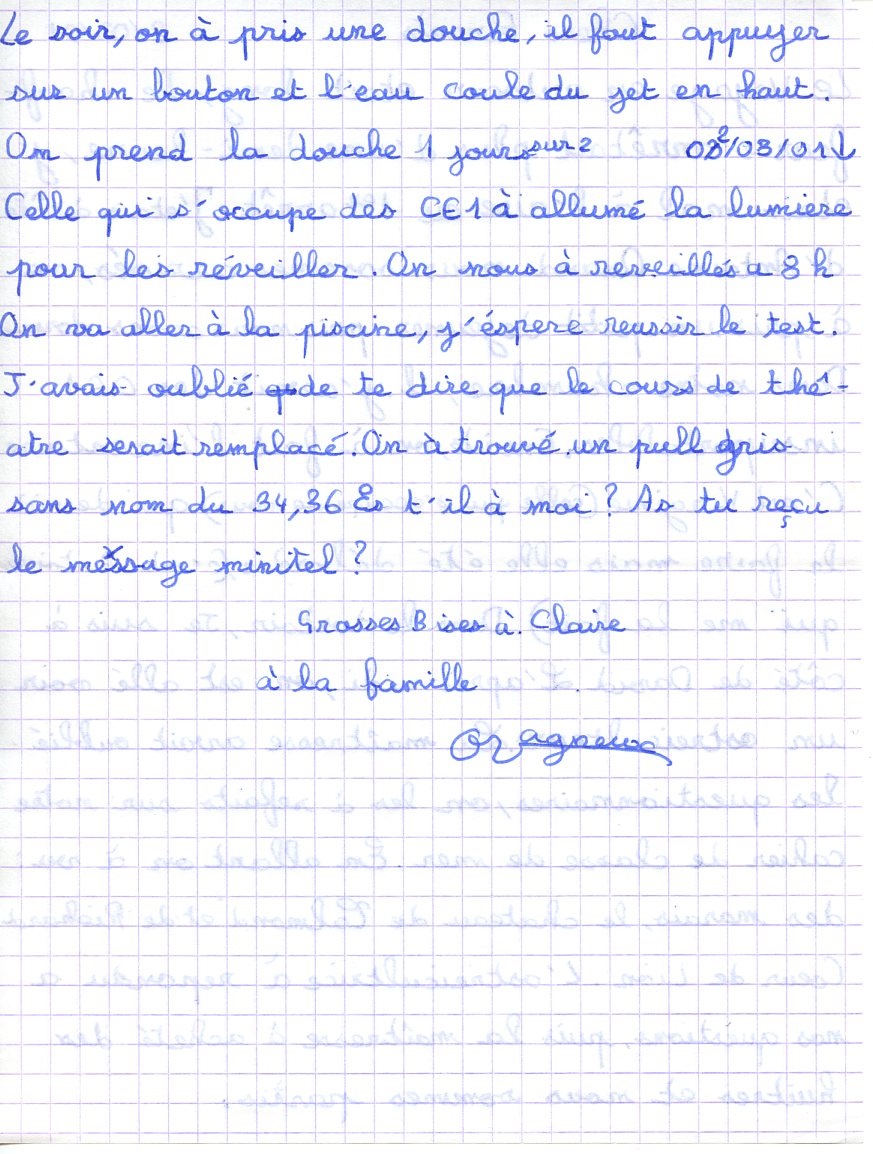 Le soir, on à pris une douche, il faut appuyer
sur un bouton et l'eau coule du jet en haut.
On prend la douche 1 jours sur 2 02/03/01↓
Celle qui s'occupe des CE1 à allumé la lumiere
pour les réveiller. On nous à reveillés a 8 h
On va aller à la piscine, j'éspere reussir le test.
J'avais oublié de te dire que le cours de thê-
atre serait remplacé. On à trouvé un pull gris
sans nom du 34,36 Es t'il à moi ? As tu reçu
le message minitel ?
Grosses Bises à Claire
à la famille